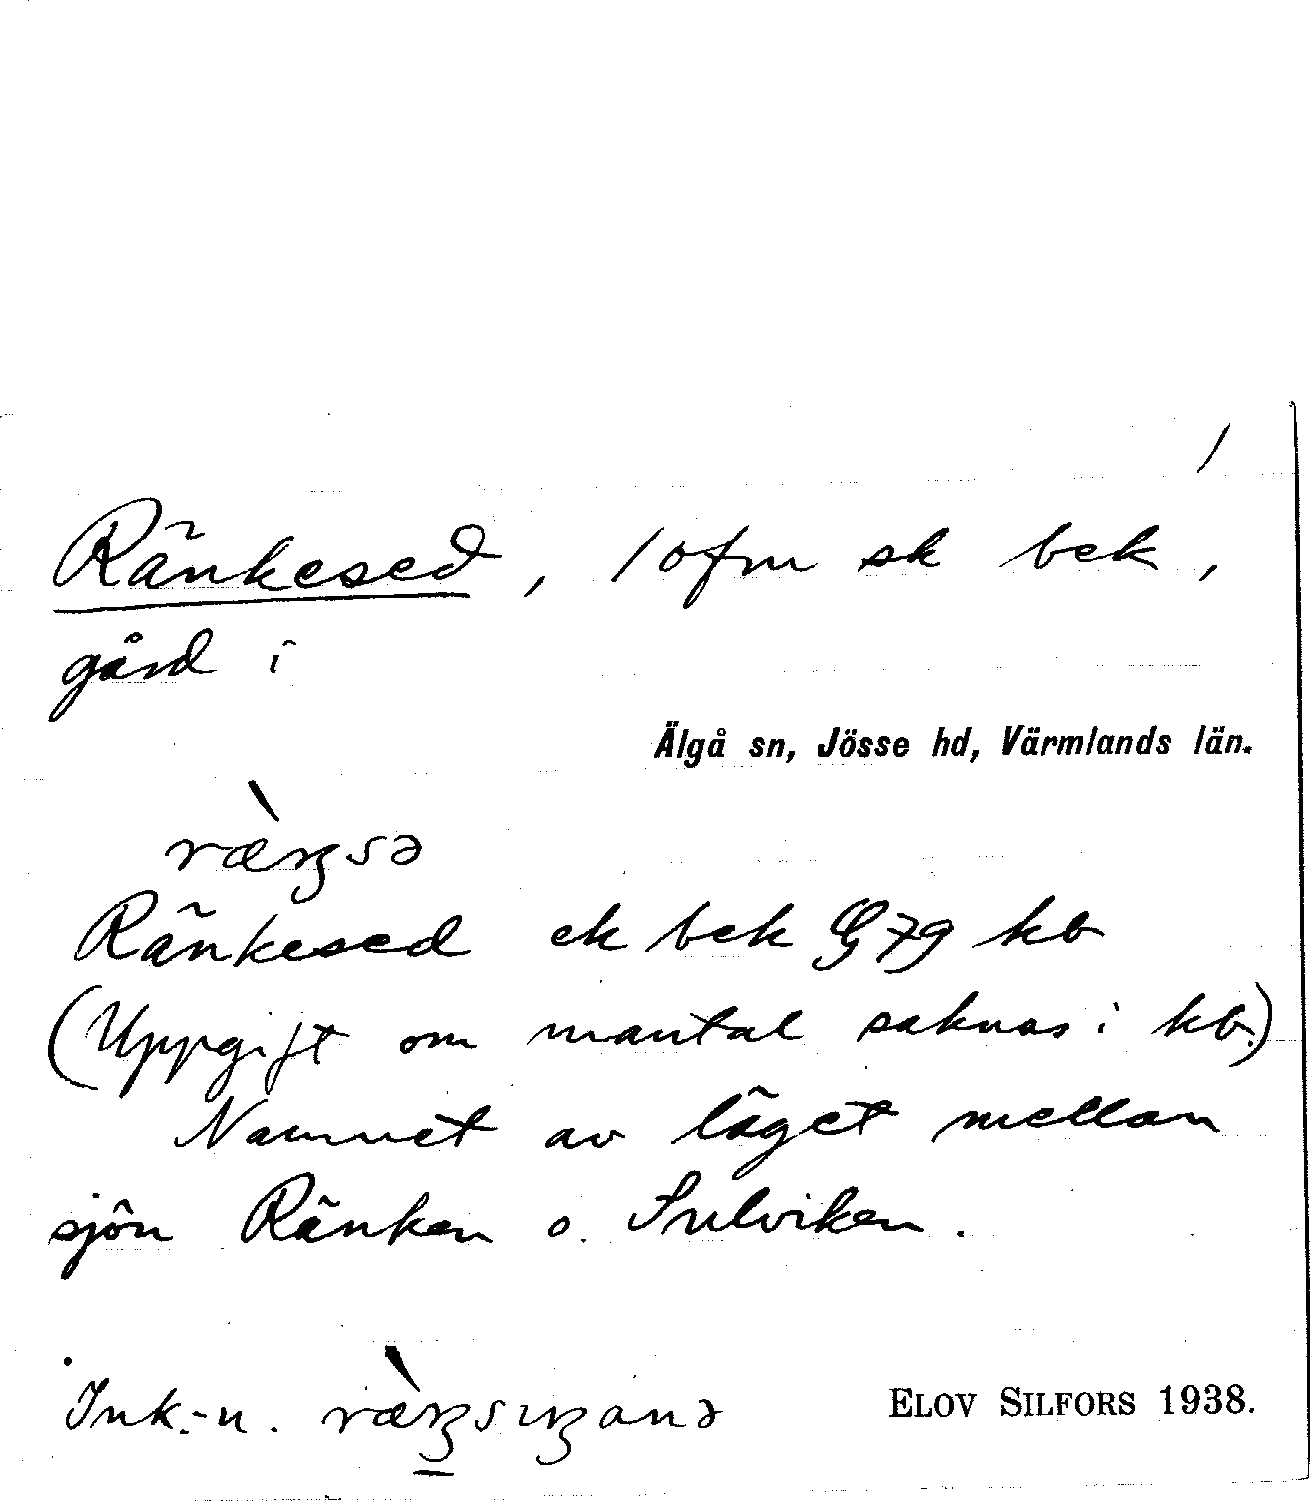 /
Ränkesed, 1 ofm sk bek,
gård i
Älgå sn, Jösse hd, Värmlands län.
ræ̀ŋsə
Ränkesed ek bek G79 kb
(Uppgift om mantal saknas i kb.)
Namnet av läget mellan
sjön Ränken o. Sulviken.
Ink.-n.
ELOV SILFORS 1938.